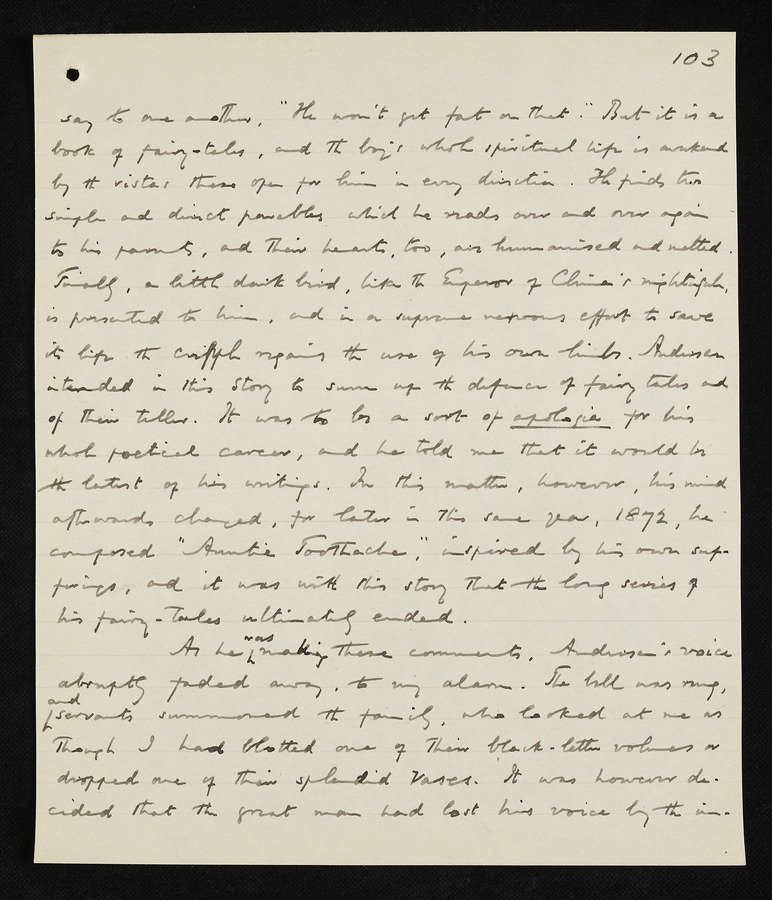 103
say to one another, "He won't get fat on that." But it is a
book of fairy-tales, and the boy's whole spiritual life is awakened
by the vistas these open for him in every direction. He finds two
simple and direct parables which he reads over and over again
to his parents, and their hearts, too, are humanised and melted.
Finally, a little dark bird, like the Emperor of China's nightingale,
is presented to him, and in a supreme nervous effort to save
its life the cripple regains the use of his own limbs. Andersen
intended in this story to sum up the defence of fairy tales and
of their teller. It was to be a sort of apologia for his
whole poetical career, and he told me that it would be
the latest of his writings. In this matter, however, his mind
afterwards changed, for later in the same year, 1872, he
composed "Auntie Toothache," inspired by his own suf-
ferings, and it was with this story that the long series of
his fairy-tales ultimately ended.
As he was making these comments, Andersen's voice
abruptly faded away, to my alarm. The bell was rung,
and servants summoned the family, who looked at me as
though I had blotted one of their black-letter volumes or
dropped one of their splendid vases. It was however de-
cided that the great man had lost his voice by the im-